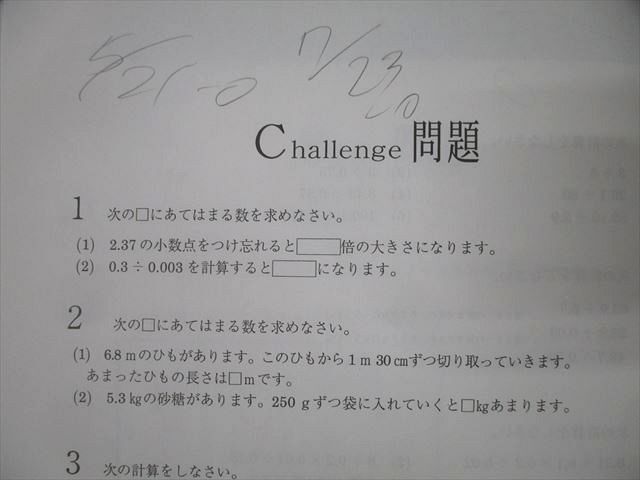 5/21-0 7/23
Challenge 問題
1 次の□にあてはまる数を求めなさい。
(1) 2.37の小数点をつけ忘れると□倍の大きさになります。
(2) 0.3÷0.003を計算すると□になります。
2 次の□にあてはまる数を求めなさい。
(1) 6.8mのひもがあります。このひもから1m30㎝ずつ切り取っていきます。
あまったひもの長さは□mです。
(2) 5.3㎏の砂糖があります。250gずつ袋に入れていくと□㎏あまります。
3 次の計算をしなさい。